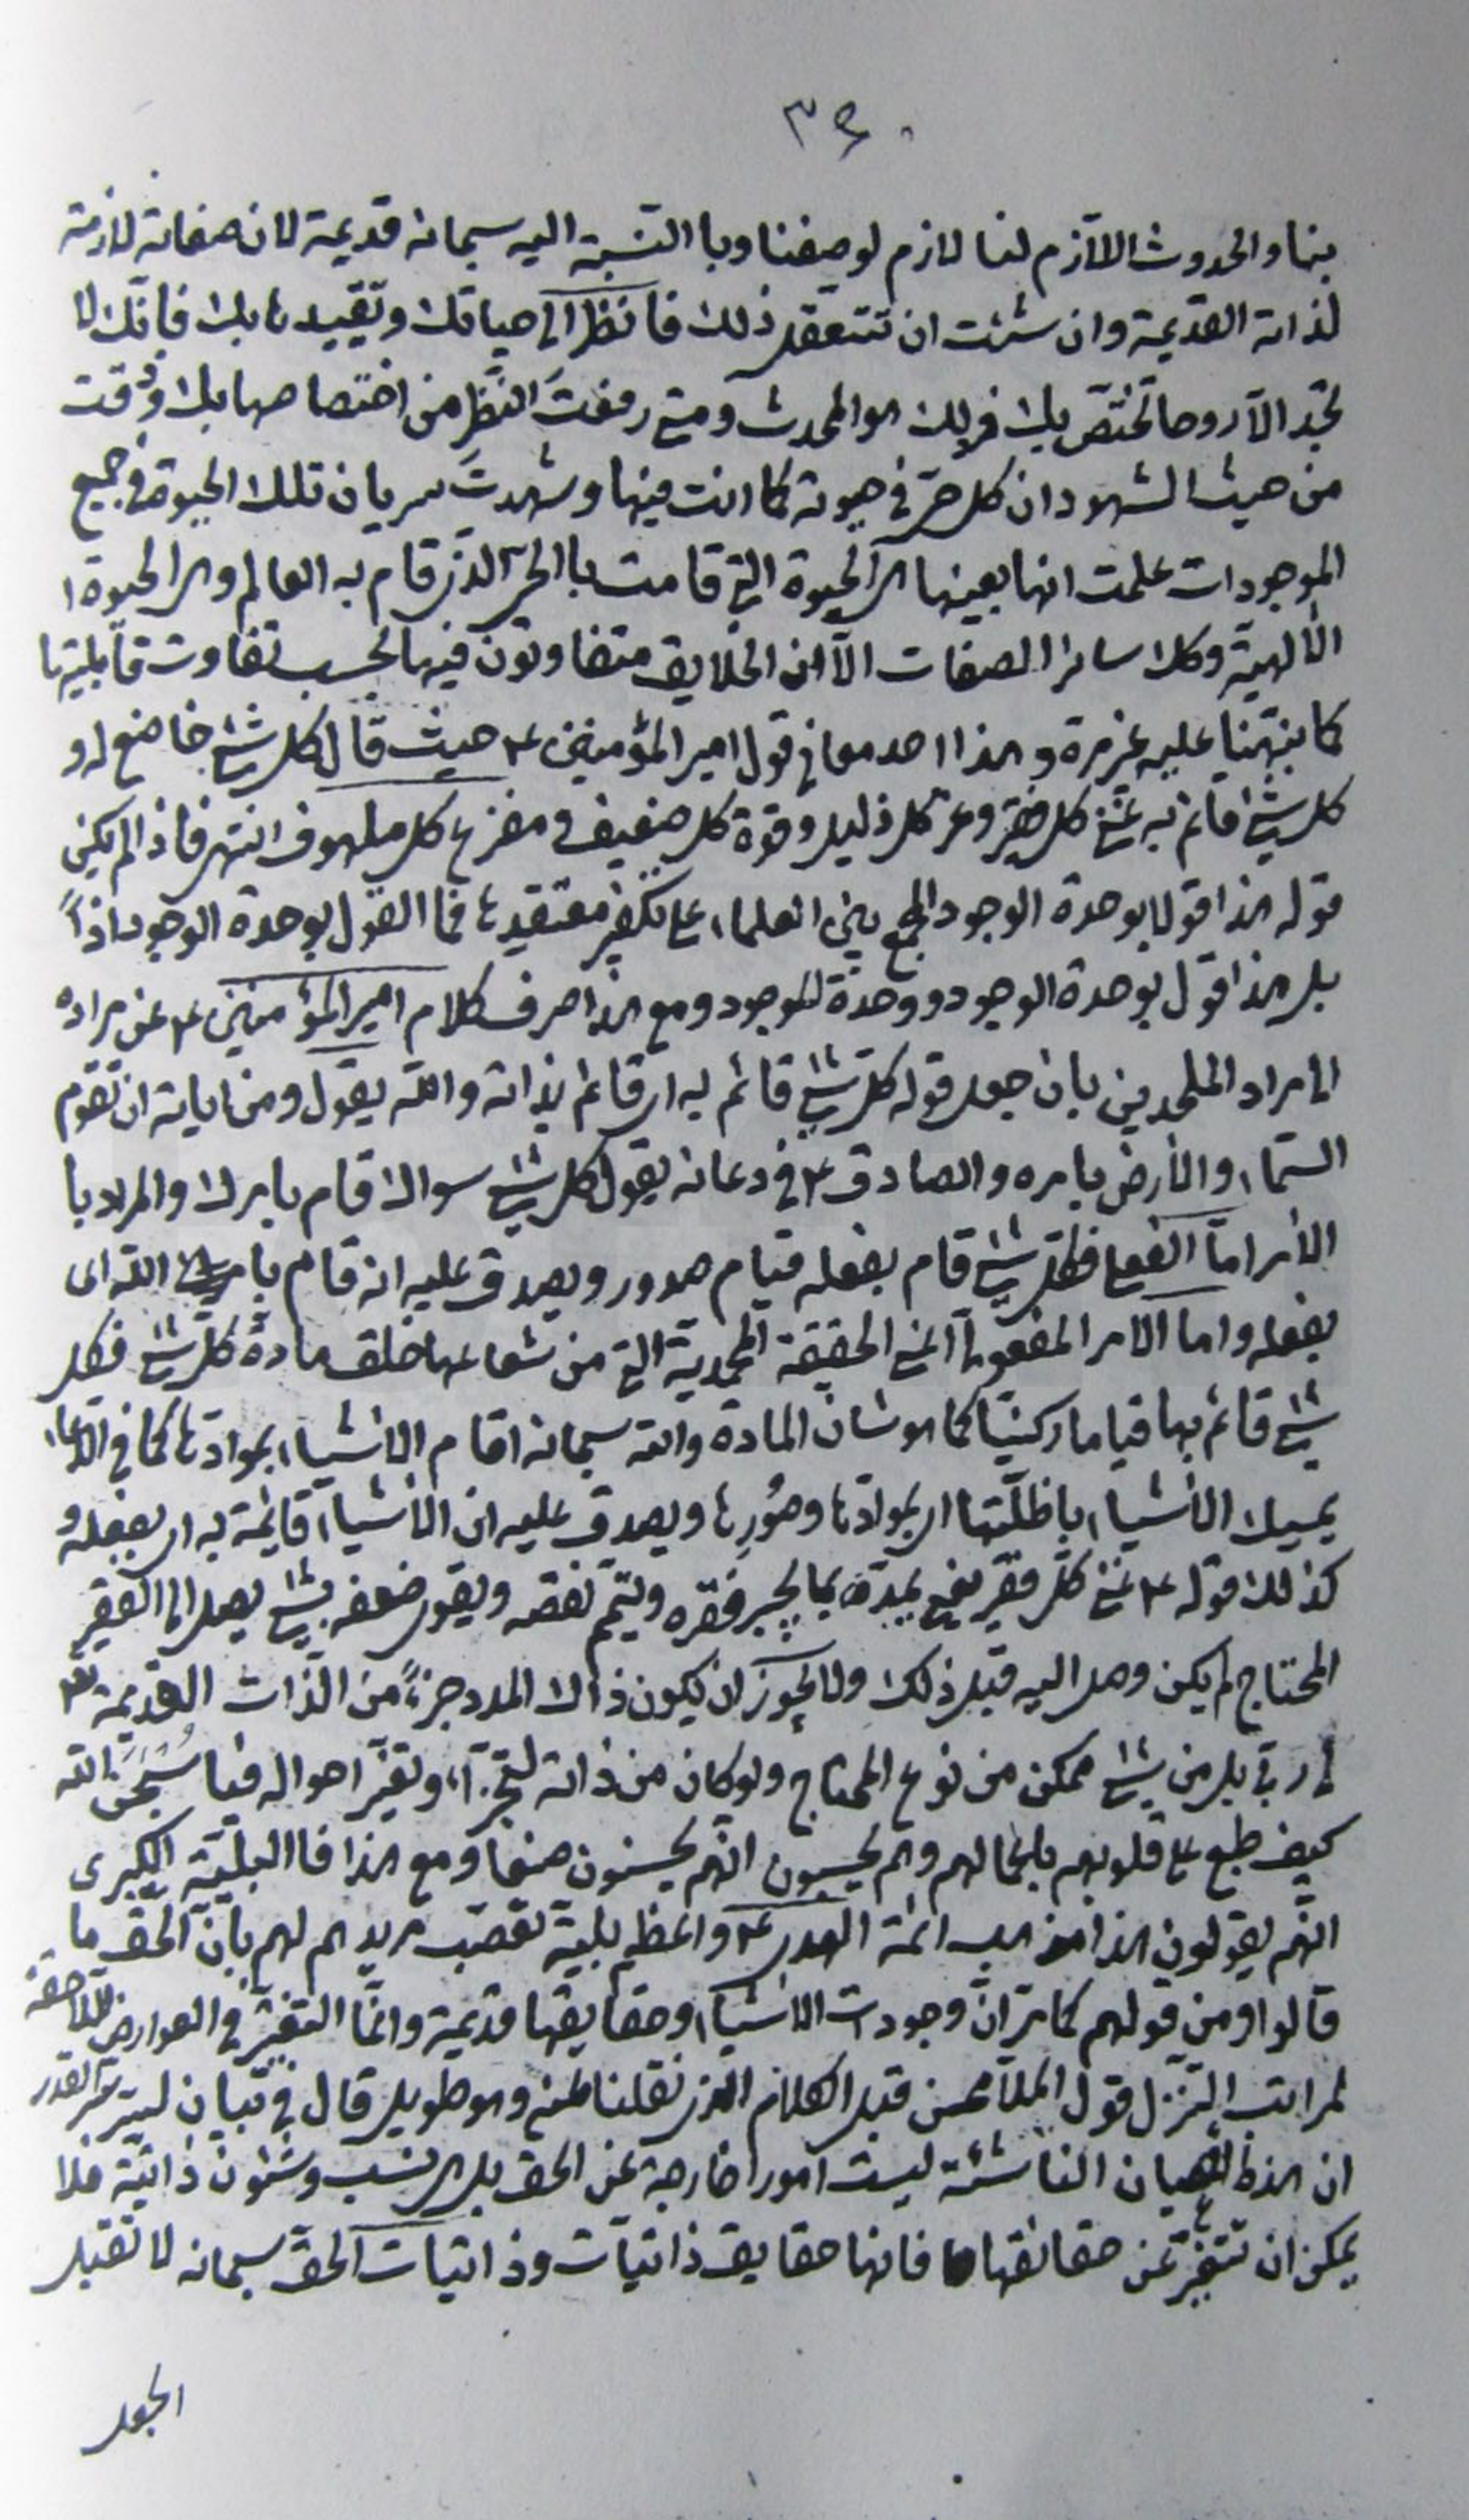 ٣٤٠
بنا والحدوث اللازم لنا لازم لوصفنا وبا النسبة اليه سبحانه قديمة لان صفاته لازمة
لذاته القديمة وان شئت ان تتعقل ذلك فانظر الى حياتك وتقييدها بك فانك لا
تجد الا روحا تختص بك فذلك هو المحدث ومتى رفعت النظر من اختصاصها بك وذقت
من حيث الشهود ان كل حي في حيوته كما انت فيها وشهدت سريان تلك الحيوة في جميع
الموجودات علمت انها بعينها هي الحيوة التي قامت با الحي الذي قام به العالم وهي الحيوة ا
الالهية وكذا سائر الصفات الا ان الخلايق متفاوتون فيها بحسب تفاوت قابليتها
كما نبهنا عليه غير مرة وهذا احد معاني قول امير المؤمنين ع حيث قال كل شئ خاضع له و
كل شئ قائم به غنى كل فقير وعز كل ذليل وقوة كل ضعيف ومفزع كل ملهوف انتهى فاذا لم يكن
قوله هذا قولا بوحدة الوجود المجمع بين العلماء على تكفير معتقدها فما القول بوحدة الوجود اذاً
بل هذا قول بوحدة الوجود ووحدة الموجود ومع هذا صرف كلام امير المؤمنين ع عن مراده
الى مراد الملحدين بان جعل قوله كل شئ قائم به اى قائم بذاته والله يقول ومن اياته ان تقوم
السماء والأرض بامره والصادق ع في دعائه يقول كل شئ سواك قام بامرك والمراد با
الأمر اما الفعلى فكل شئ قام بفعله قيام صدور ويصدق عليه انه قام بامر الله اى
بفعله واما الامر المفعولى اعنى الحقيقة المحمدية التي من شعاعها خلق مادة كل شئ فكل
شئ قائم بها قياما ركنيا كما هو شان المادة والله سبحانه اقام الاشياء بموادها كما في الدعاء
يمسك الأشياء باظلتها اى بموادها وصورها ويصدق عليه ان الأشياء قائمة به اى بفعله و
كذلك قوله ع غنى كل فقير يعنى يمده بما يجبر فقره ويتم نقصه ويقوى ضعفه بشئ يصل الى الفقير
المحتاج لم يكن وصل اليه قبل ذلك ولا يجوز ان يكون ذلك المدد جزءً من الذات القديمة تع
ربي بل من شئ ممكن من نوع المحتاج ولو كان من ذاته لتجزّأ وتغير احواله فيا سبحان الله
كيف طبع على قلوبهم باعمالهم وهم يحسبون انهم يحسنون صنعا ومع هذا فا البلية الكبرى
انهم يقولون هذا مذهب ائمة الهدى ع واعظم بلية تعصب مريدهم لهم بان الحق ما
قالوا ومن قولهم كما مر ان وجودات الاشياء وحقايقها قديمة وانما التغير في العوارض اللاحقة
لمراتب التنزل قول الملا محسن قبل الكلام الذي نقلنا عنه وهو طويل قال في بيان سر القدر
ان هذه الاعيان الناشئة ليست امورا خارجة عن الحق بل هي نسب وشئون ذاتية فلا
يمكن ان تتغير عن حقائقها فانها حقايق ذاتيات وذاتيات الحق سبحانه لا تقبل
الجعل